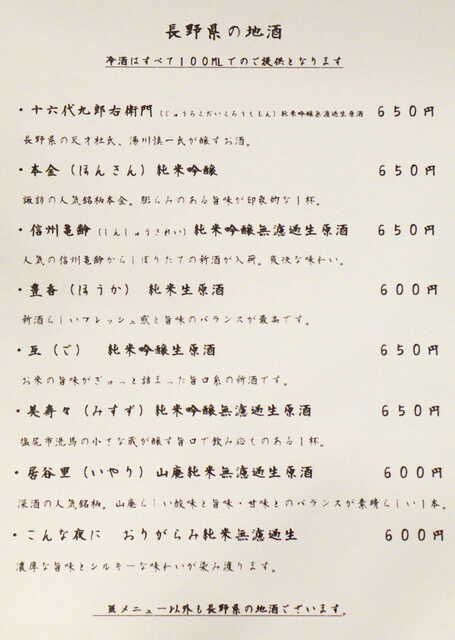 長野県の地酒
冷酒はすべて100MLでのご提供となります
・十六代九郎右衛門(じゅうろくだいくろううえもん)純米吟醸無濾過生原酒 650円
長野県の天才杜氏、湯川慎一氏が醸すお酒。
・本金(ほんきん)純米吟醸 650円
諏訪の人気銘柄本金。膨らみのある旨味が印象的な1杯。
・信州亀齢(しんしゅうきれい)純米吟醸無濾過生原酒 650円
人気の信州亀齢からしぼりたての新酒が入荷。爽快な味わい。
・豊香(ほうか) 純米生原酒 600円
新酒らしいフレッシュ感と旨味のバランスが最高です。
・亙(ご) 純米吟醸生原酒 650円
お米の旨味がぎゅっと詰まった旨口系の新酒です。
・美寿々(みすず)純米吟醸無濾過生原酒 650円
塩尻市洗馬の小さな蔵が醸す旨口で飲み応えのある1杯。
・居谷里(いやり)山廃純米無濾過生原酒 600円
深酒の人気銘柄。山廃らしい酸味と旨味・甘味とのバランスが素晴らしい1本。
・こんな夜に おりがらみ純米無濾過生 600円
濃厚な旨味とシルキーな味わいが染み渡ります。
メニュー以外も長野県の地酒ございます。